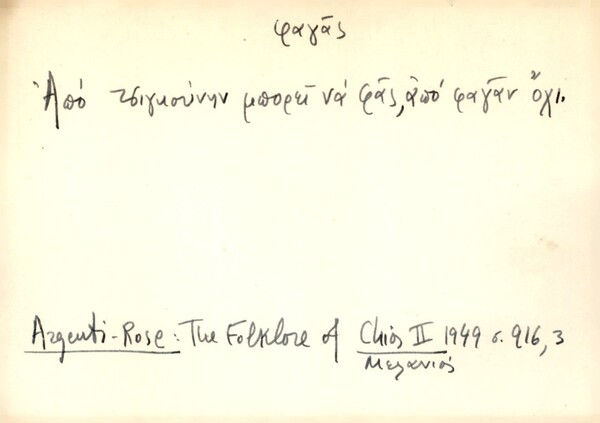 φαγᾶς
Ἀπό τσιγκούνην μπορεῖ νά φᾶς, ἀπό φαγᾶν ὄχι.
Argenti-Rose: The Folklore of Chios II 1949 σ. 916, 3
Μελανιός